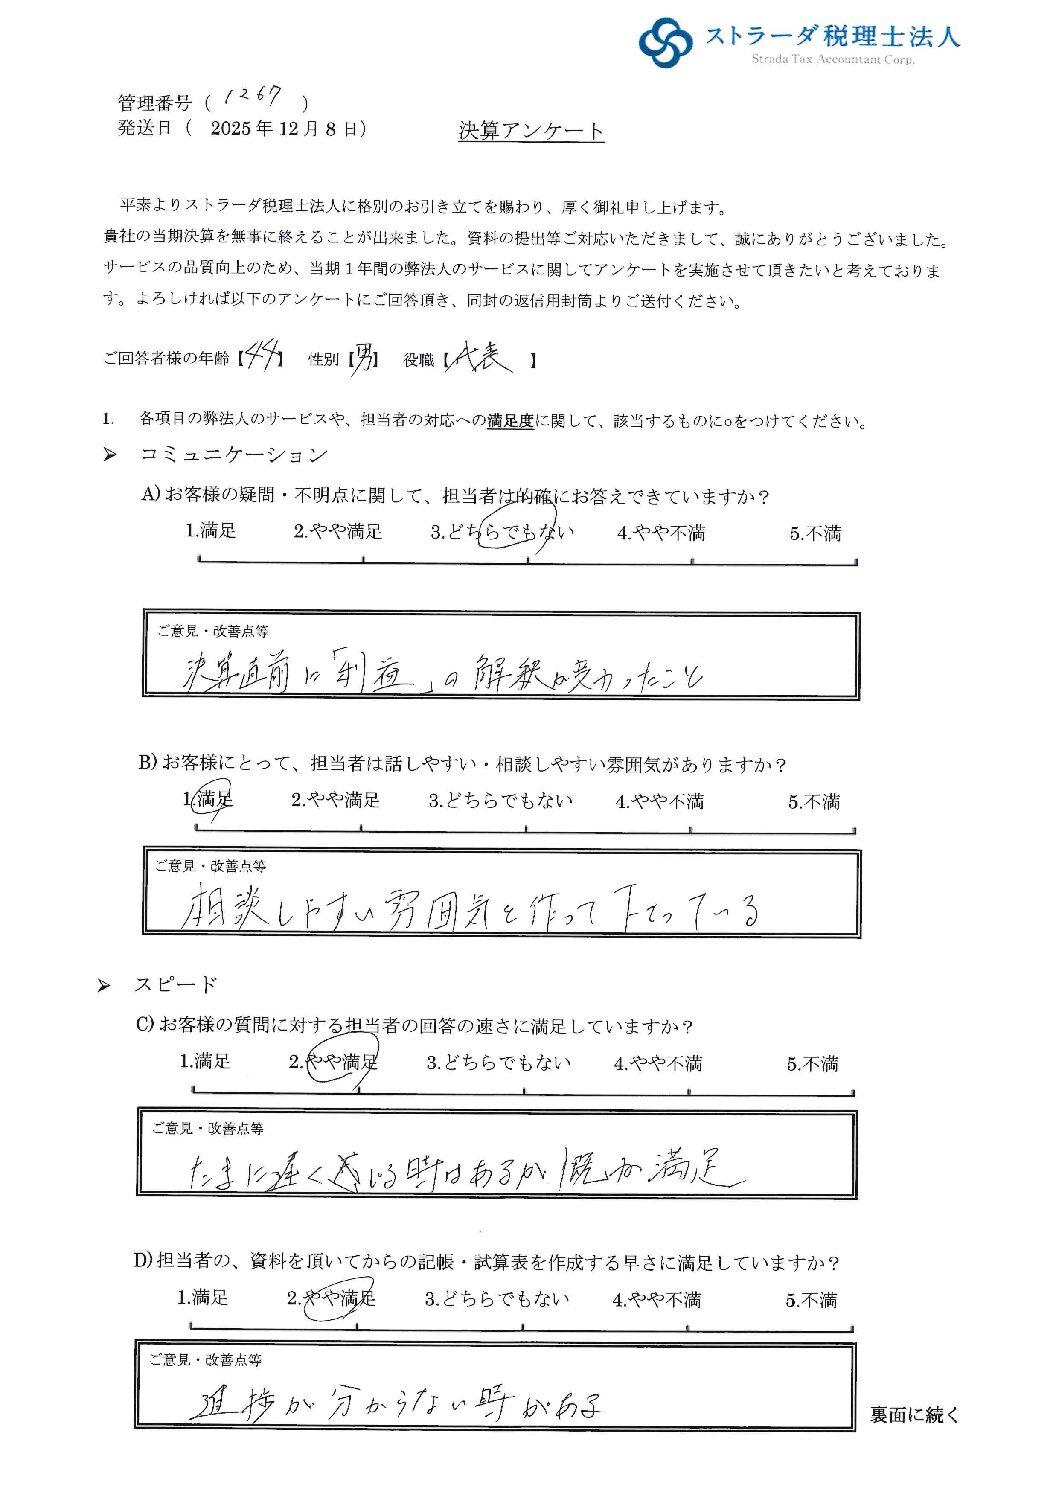 ストラーダ税理士法人
Strada Tax Accountant Corp.
管理番号（ 1267 ）
発送日（ 2025年12月8日）
決算アンケート
平素よりストラーダ税理士法人に格別のお引き立てを賜わり、厚く御礼申し上げます。
貴社の当期決算を無事に終えることが出来ました。資料の提出等ご対応いただきまして、誠にありがとうございました。
サービスの品質向上のため、当期１年間の弊法人のサービスに関してアンケートを実施させて頂きたいと考えておりま
す。よろしければ以下のアンケートにご回答頂き、同封の返信用封筒よりご送付ください。
ご回答者様の年齢【44】 性別【男】 役職【代表 】
1. 各項目の弊法人のサービスや、担当者の対応への満足度に関して、該当するものに○をつけてください。
➢ コミュニケーション
A)お客様の疑問・不明点に関して、担当者は的確にお答えできていますか？
1.満足 2.やや満足 3.どちらでもない 4.やや不満 5.不満
ご意見・改善点等
決算直前に「利益」の解釈が変わったこと
B)お客様にとって、担当者は話しやすい・相談しやすい雰囲気がありますか？
1.満足 2.やや満足 3.どちらでもない 4.やや不満 5.不満
ご意見・改善点等
相談しやすい雰囲気を作って下さっている
➢ スピード
C)お客様の質問に対する担当者の回答の速さに満足していますか？
1.満足 2.やや満足 3.どちらでもない 4.やや不満 5.不満
ご意見・改善点等
たまに遅く感じる時はあるが概ね満足
D)担当者の、資料を頂いてからの記帳・試算表を作成する早さに満足していますか？
1.満足 2.やや満足 3.どちらでもない 4.やや不満 5.不満
ご意見・改善点等
進捗が分からない時がある
裏面に続く